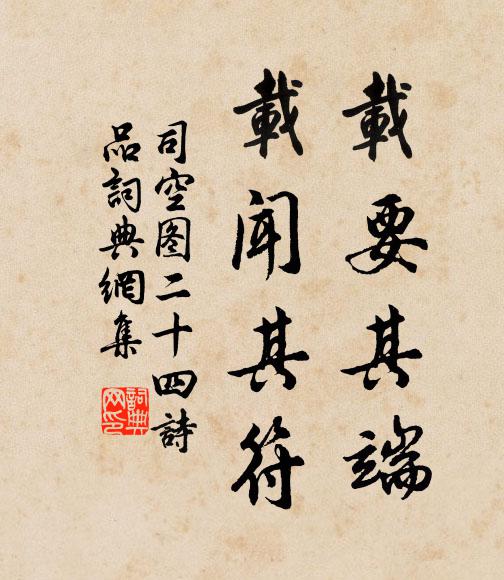 載要其端
載聞其符
司空图二十四詩
品詞典網集
詞典网印